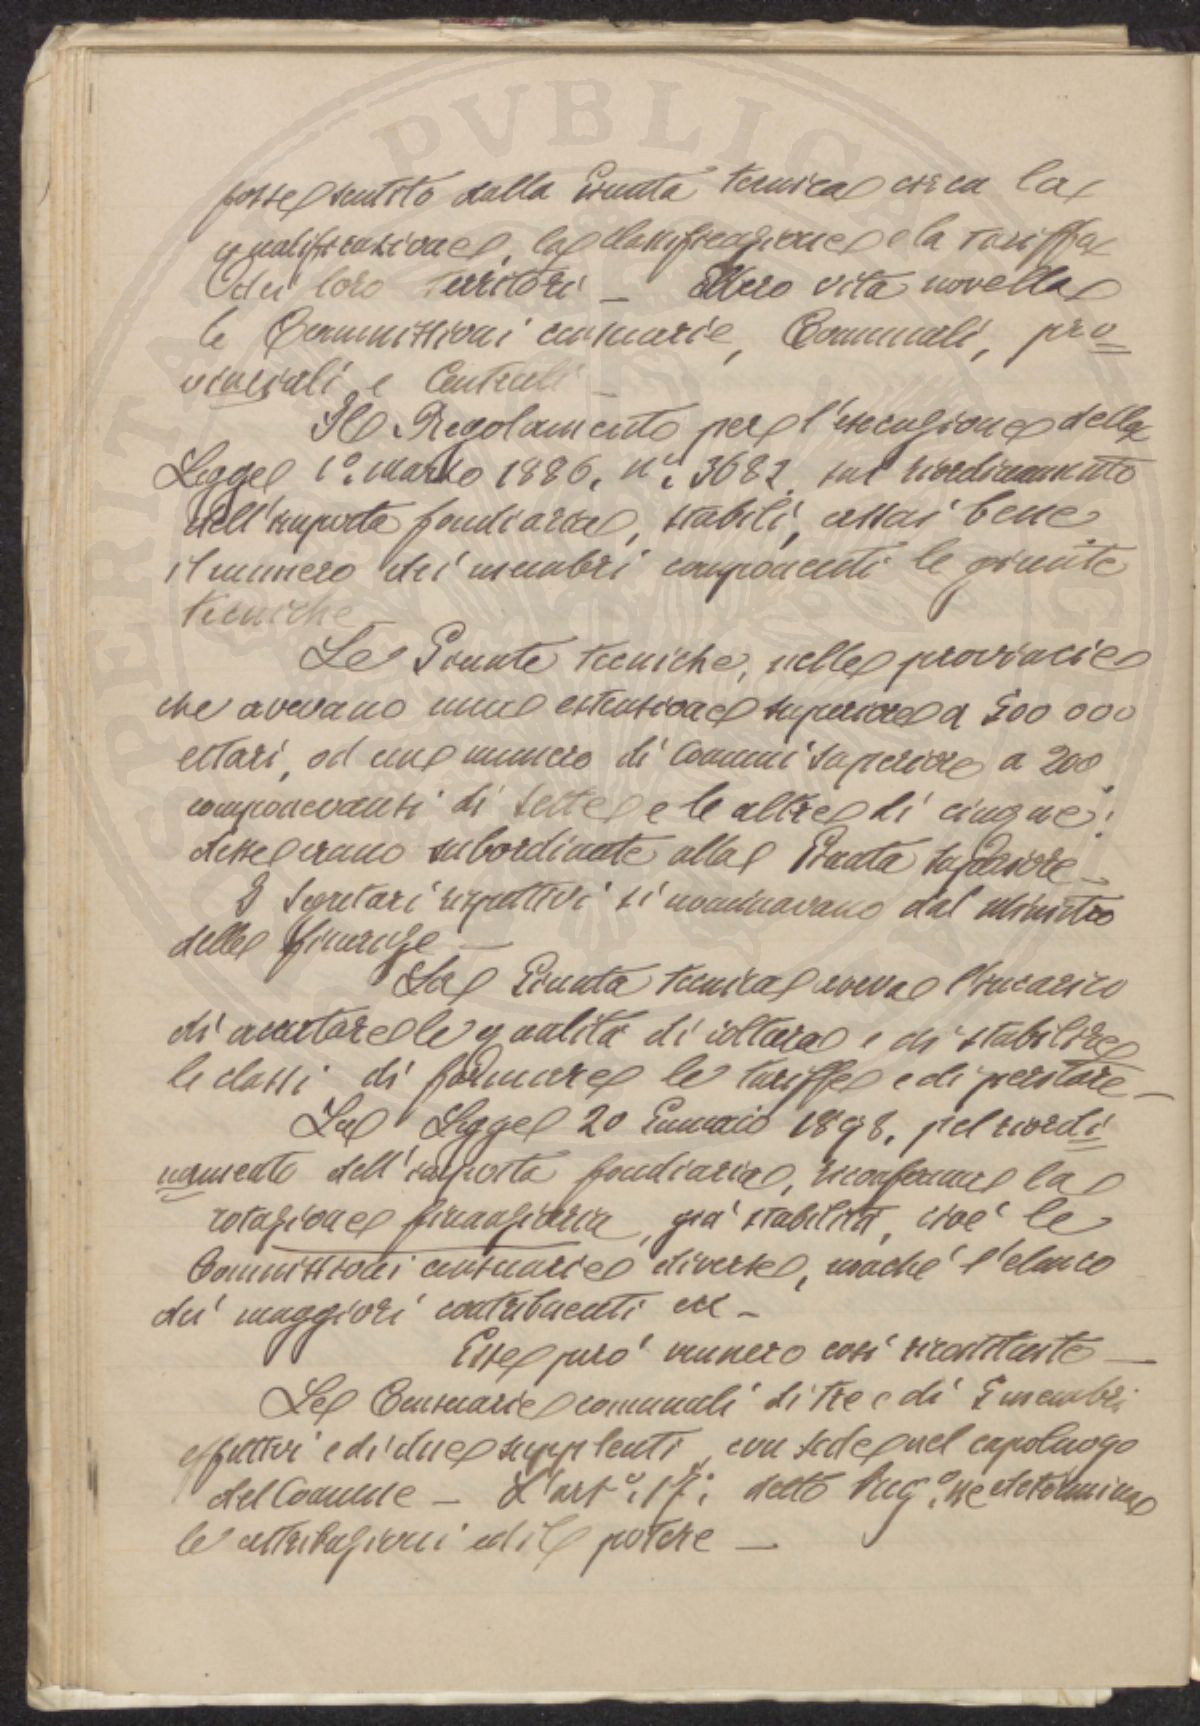 fosse sentito dalla Giunta tecnica circa la
qualificazione, la classificazione e la tariffa
dei loro territori — Ebbero vita novella
le Commissioni censuarie, Comunali, pro=
vinciali e Centrali —
Il Regolamento per l'esecuzione della
Legge 1° marzo 1886, n° 3682, sul riordinamento
dell'imposta fondiaria, stabilì, assai bene
il numero dei membri componenti le giunte
tecniche
Le Giunte tecniche, nelle provincie
che avevano una estensione superiore a 500 000
ettari, od un numero di Comuni superiore a 200
componevansi di sette e le altre di cinque:
desse erano subordinate alla Giunta Superiore —
I Segretari rispettivi si nominavano dal Ministro
delle finanze —
La Giunta tecnica aveva l'incarico
di accertare le qualità di coltura e di stabilire
le classi di formare le tariffe e di peritare —
La Legge 20 Gennaio 1898, pel riordi=
namento dell'imposta fondiaria, riconferma la
rotazione finanziaria, già stabilita, cioè le
Commissioni censuarie diverse, nonché l'elenco
dei maggiori contribuenti ecc —
Esse però vennero così ricostituite —
Le Censuarie comunali di tre e di 5 membri
effettivi e di due supplenti, con sede nel capoluogo
del Comune — L'art° 17: detto Reg°, ne determina
le attribuzioni ed il potere —
PVBLICA
VERITA